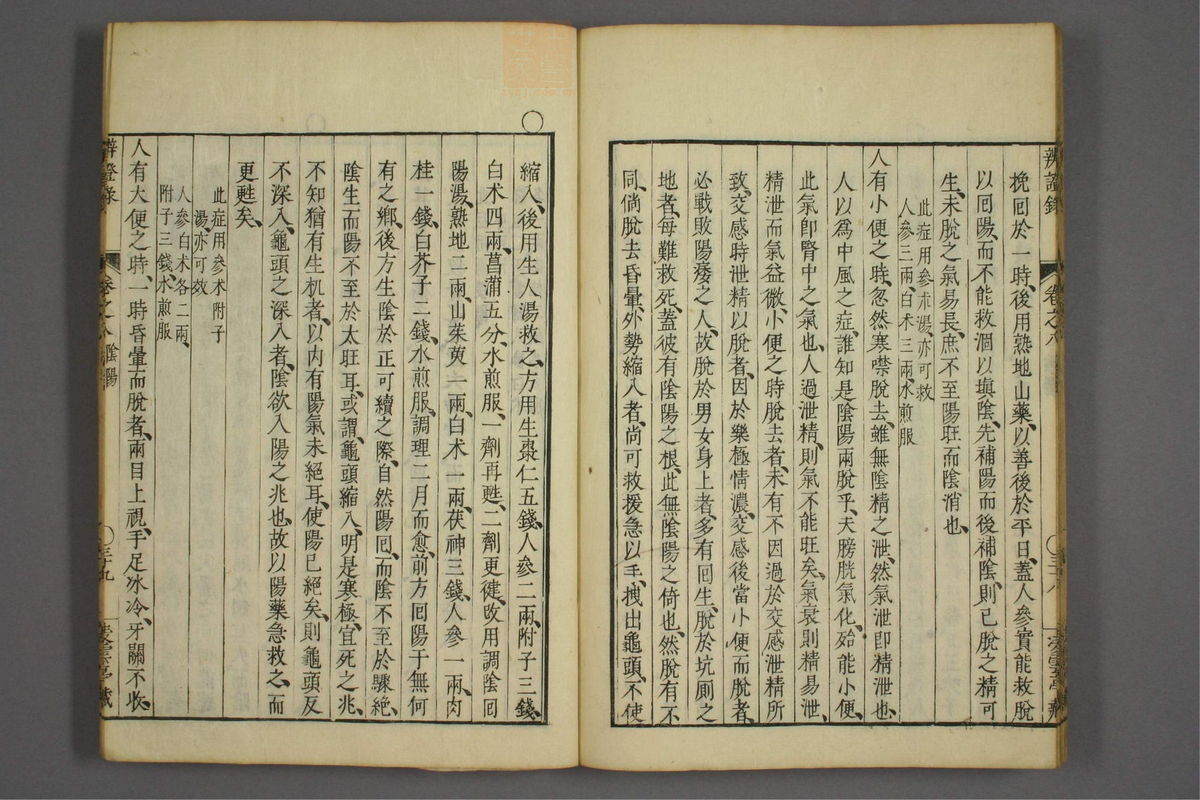 辨證錄 卷之八 三十八
挽囘於一時、後用熟地山藥、以善後於平日、蓋人參實能救脫
以囘陽、而不能救涸以塡陰、先補陽而後補陰、則已脫之精可
生、未脫之氣易長、庶不至陽旺而陰消也、
此症用參朮湯、亦可救
人參三兩、白朮三兩、水煎服
人有小便之時、忽然寒噤脫去、雖無陰精之泄、然氣泄即精泄也、
人以爲中風之症、誰知是陰陽兩脫乎、夫膀胱氣化、殆能小便、
此氣卽腎中之氣也、人過泄精、則氣不能旺矣、氣衰則精易泄、
精泄而氣益微、小便之時脫去者、未有不因過於交感泄精所
致、交感時泄精以脫者、因於樂極情濃、交感後當小便而脫者、
必戰敗陽痿之人、故脫於男女身上者、多有囘生、脫於坑厠之
地者、每難救死、蓋彼有陰陽之根、此無陰陽之倚也、然脫有不
同、倘脫去昏暈、外勢縮入者、尚可救援、急以手、拽出龜頭、不使
縮入、後用生人湯救之、方用生棗仁五錢、人參二兩、附子三錢、
白朮四兩、菖蒲五分、水煎服、一劑再甦、二劑更健、改用調陰囘
陽湯、熟地二兩、山茱萸一兩、白朮一兩、茯神三錢、人參一兩、肉
桂一錢、白芥子二錢、水煎服、調理二月而愈、前方囘陽于無何
有之鄉、後方生陰於正可續之際、自然陽囘、而陰不至於驟絶、
陰生而陽不至於太旺耳、或謂龜頭縮入、明是寒極、宜死之兆、
不知猶有生机者、以內有陽氣未絕耳、使陽已絕矣、則龜頭反
不深入、龜頭之深入者、陰欲入陽之兆也、故以陽藥急救之、而
更甦矣、
此症用參朮附子
湯、亦可效
人參白朮各二兩、
附子三錢、水煎服
人有大便之時、一時昏暈而脫者、兩目上視、手足氷冷、牙關不收、
辨證錄 卷之八 陰陽脫 三十九